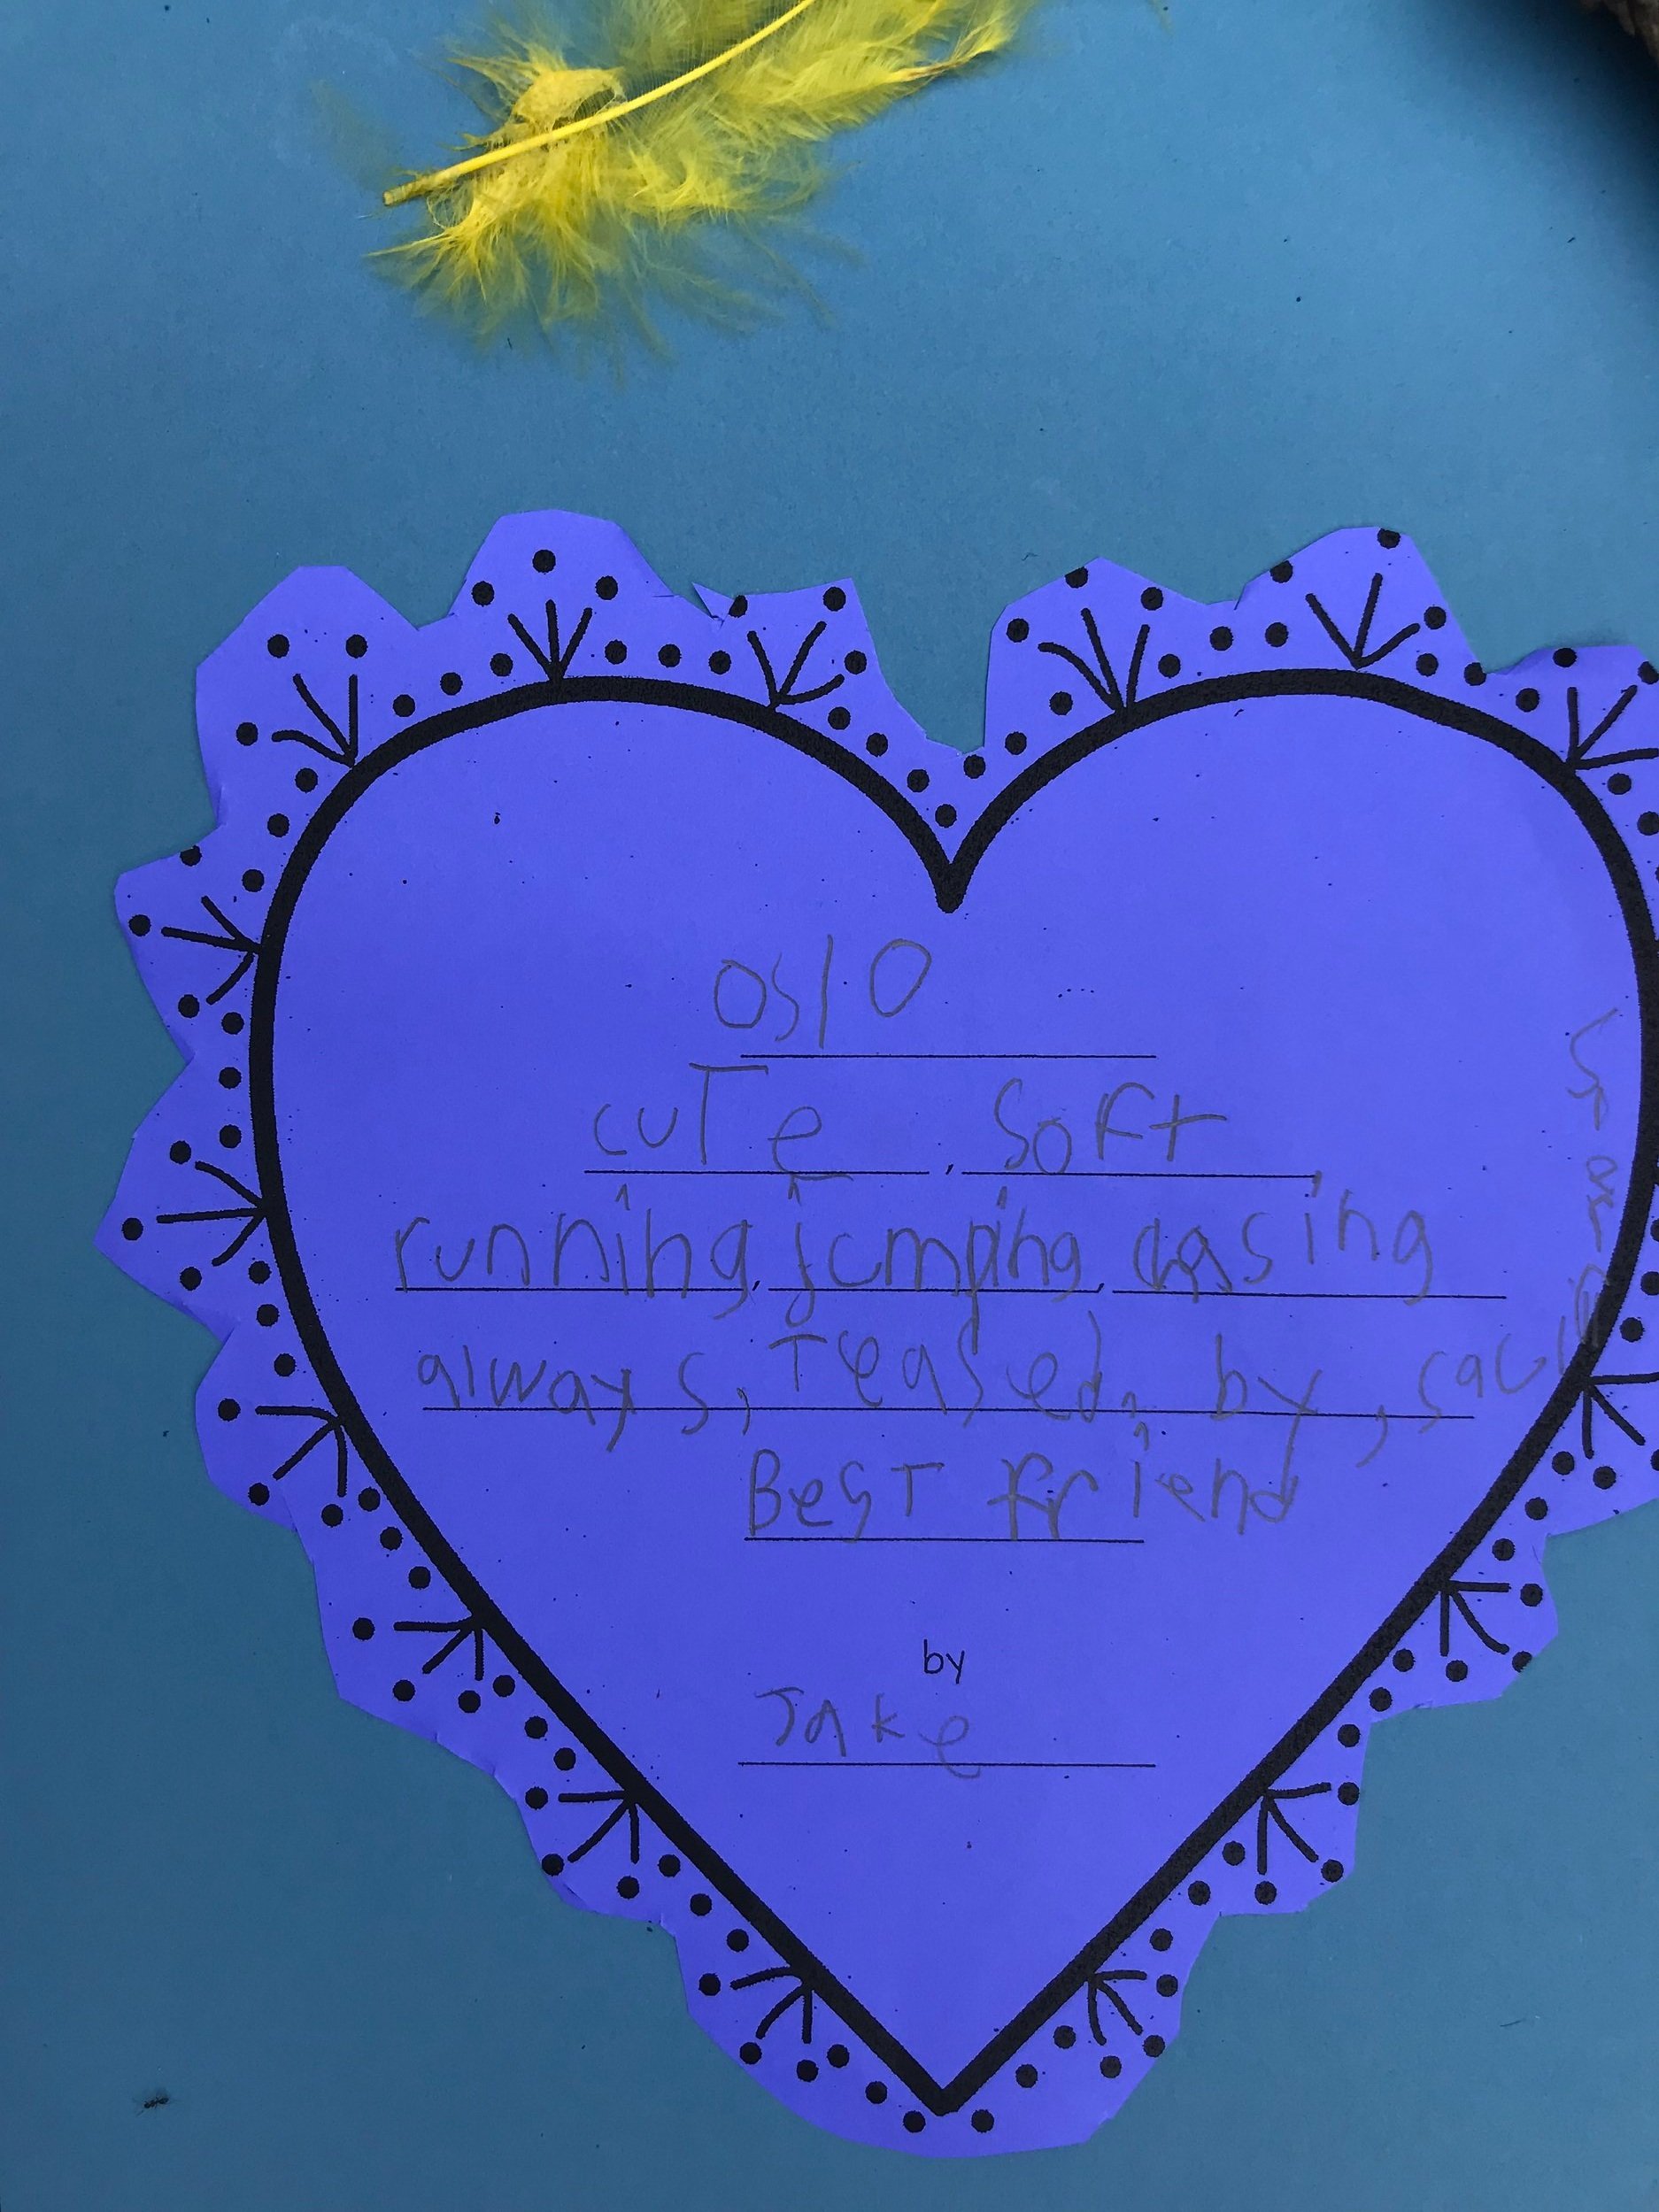 oslo
cuTe, soft
running, jumping, dasing
always, Teased, by,
BesT friend
by
JAke